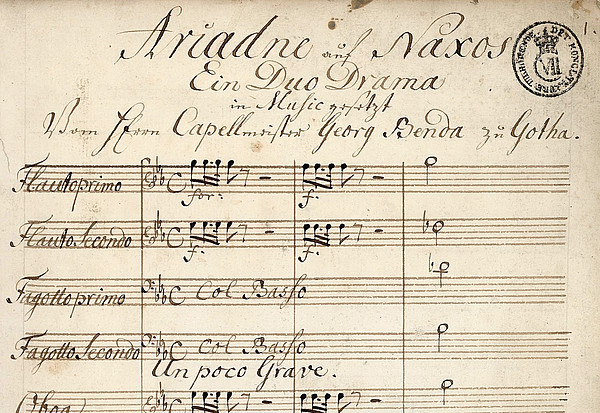 Ariadne auf Naxos
1.
Ein Duo Drama
in Music gesetzt
Vom Herrn Capellmeister Georg Benda zu Gotha.
Flauto primo
for: f.
Flauto Secondo
f. f.
Fagotto primo Col Basso
Fagotto Secondo Col Basso
Un poco Grave.
Oboa